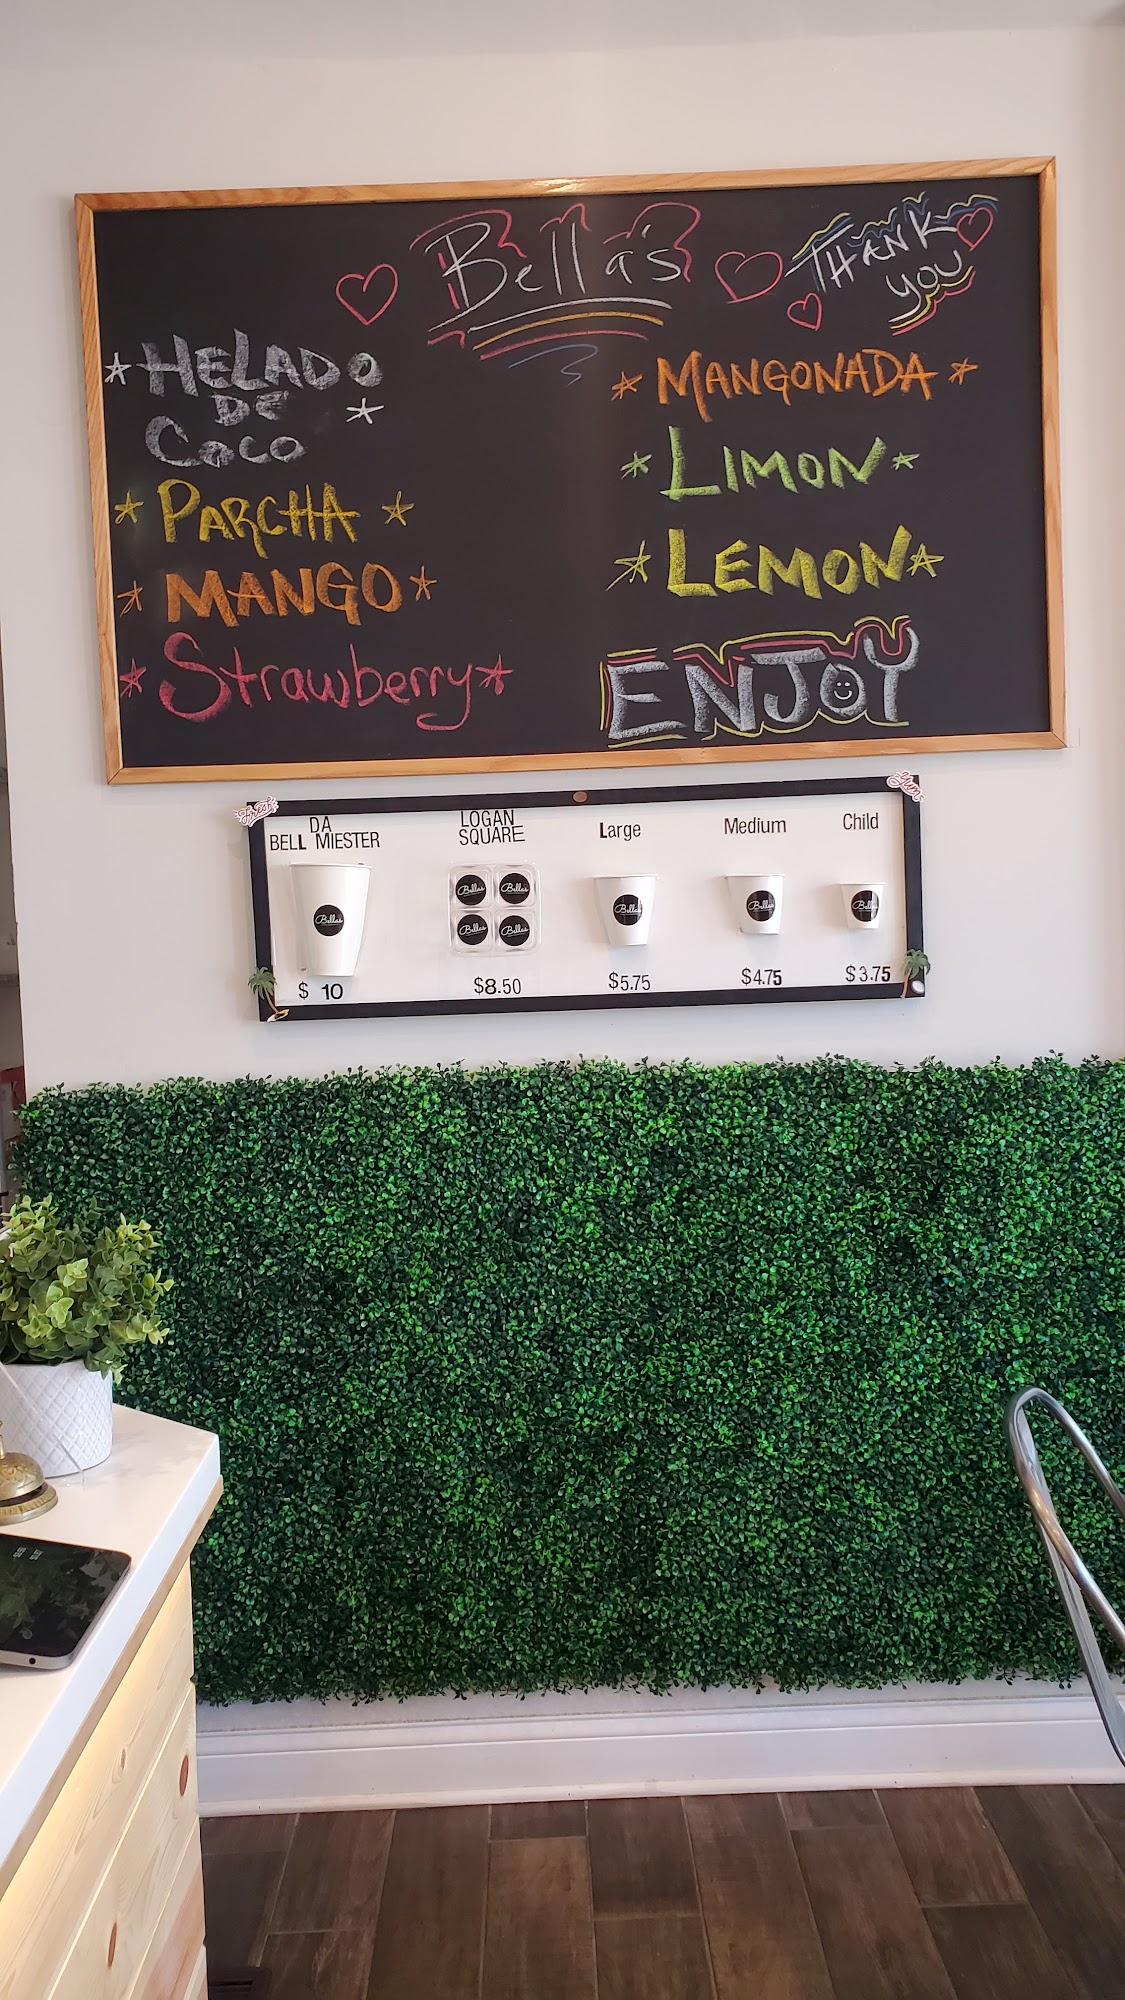 Bella's
THANK
YOU
HELADO
DE
COCO
PARCHA
MANGO
Strawberry
MANGONADA
LIMON
LEMON
ENJOY
Fresh
Yum
DA
BELL MIESTER
LOGAN
SQUARE
Large
Medium
Child
Bellas
Bellas
Bellas
Bellas
Bellas
Bellas
Bellas
Bellas
$ 10
$8.50
$5.75
$4.75
$3.75